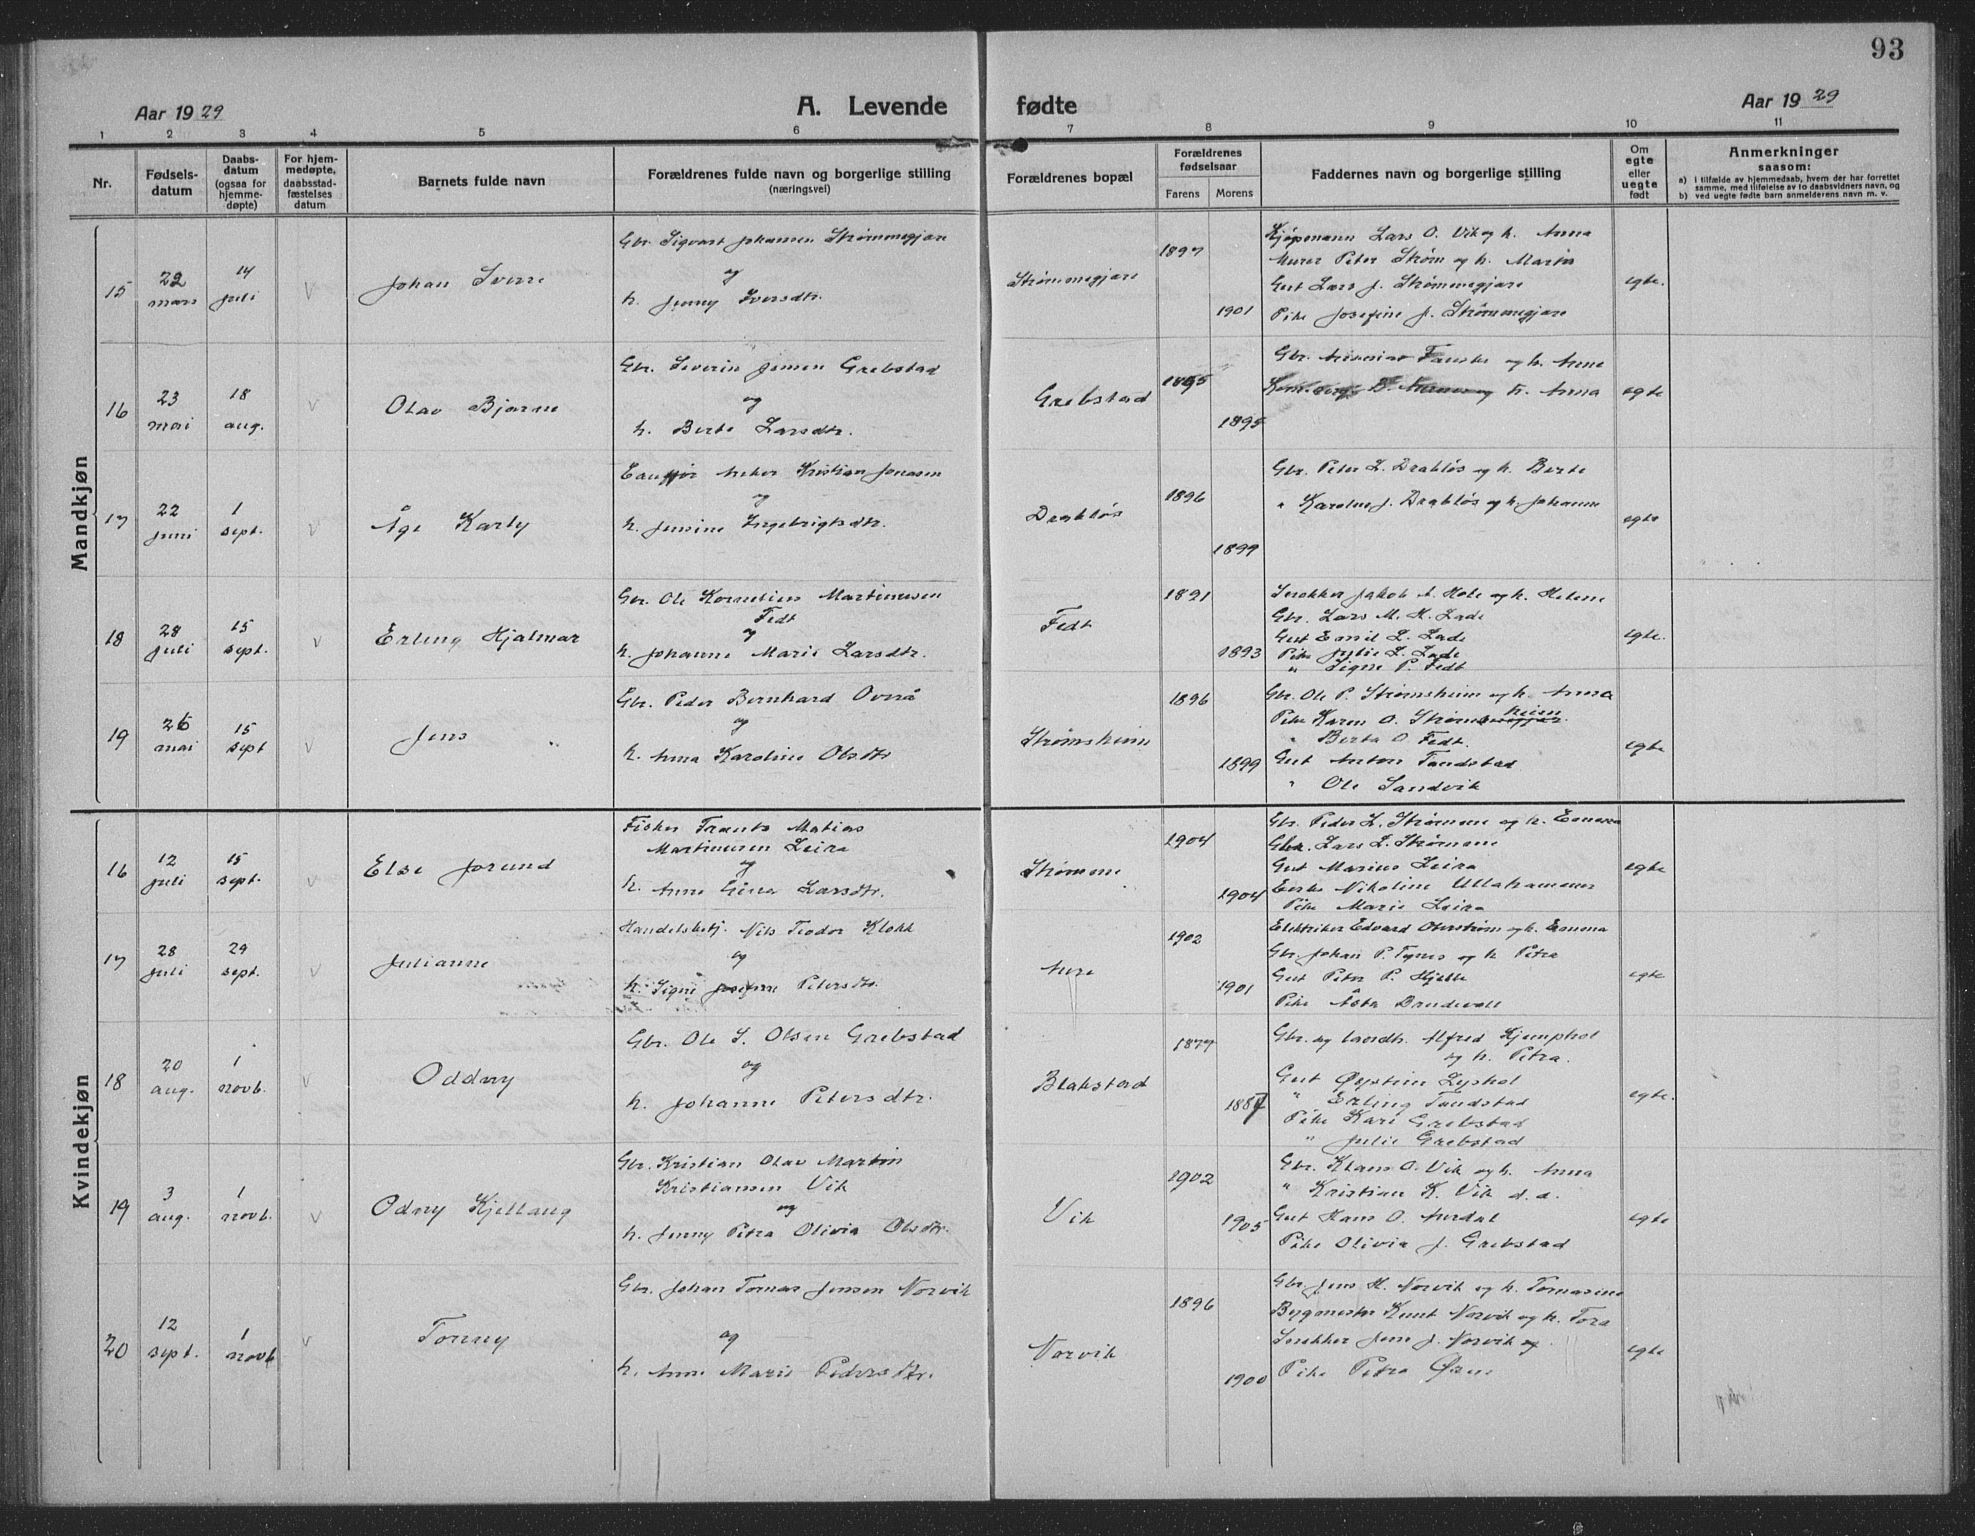 93
Aar 1929
A. Levende fødte
Aar 1929
1 2 3 4 5 6 7 8 9 10 11
Nr.
Fødsels-
datum
Daabs-
datum
(ogsaa for
hjemme-
døpte)
For hjem-
medøpte,
daabsstad-
fæstelses
datum
Barnets fulde navn
Forældrenes fulde navn og borgerlige stilling
(næringsvei)
Forældrenes bopæl
Forældrenes
fødselsaar
Farens Morens
Faddernes navn og borgerlige stilling
Om
egte
eller
uegte
født
Anmerkninger
saasom:
a) i tilfælde av hjemmedaab, hvem der har forrettet
samme, med tilføielse av to daabsvidners navn, og
b) ved uegte fødte barn anmelderens navn m. v.
Mandkjøn
15
22
mars
14
juli
Johan Sverre
Gbr. Sigvart Johansen Strømmegjære
og
h. Jenny Iversdtr.
Strømmegjære
1897
1901
Kjøpmann Lars O. Vik og h. Anna
Murer Peter Strøm og h. Marta
Gut Lars J. Strømmegjære
Pike Josefine J. Strømmegjære
egte.
16
23
mai
18
aug.
Olav Bjarne
Gbr. Severin Jensen Grebstad
og
h. Berte Larsdtr.
Grebstad
1895
1895
Gbr. Fauske og h. Anne
h. Anna
egte
17
22
juni
1
sept.
Åge Karly
Anker Kristian Jonasen
og
h. Jensine Ingebrigtsdtr.
Drabløs
1896
1899
Gbr. Peter L. Drabløs og h. Berte
" Karolus J. Drabløs og h. Johanne
egte
18
28
juli
15
sept.
Erling Hjalmar
Gbr. Ole Kornelius Martinusen
Fedt
og
h. Johanne Marie Larsdtr.
Fedt
1891
1893
Snekker Jakob A. Hole og h. Helene
Gbr. Lars M. H. Lade
Gut Emil L. Lade
Pike Julie L. Lade
" Signe P. Fedt
egte.
19
26
mai
15
sept
Jens
Gbr. Peder Bernhard Overå
og
h. Anna Karoline Olsdtr
Strømsheim
1896
1899
Gbr. Ole P. Strømsheim og h. Anna
heim
Pike Karen O. Strømmegjær.
" Berta O. Fedt.
Gut Anton Tandstad
" Ole Sandvik
egte
Kvindekjøn
16
12
juli
15
sept.
Else Jorund
Fisker Frants Matias
Martinusen Leira
og
h. Anne Gina Larsdtr.
Strømme
1904
1904
Gbr. Peder L. Strømme og h. Emma
Gbr. Lars L. Strømme
Gut Marius Leira
Enke Nikoline Ullahammer
Pike Marie Leira
egte
17
28
juli
29
sept.
Julianne
Handelsbetj. Nils Teodor Klokk
og
h. Signe Josefine Petersdtr.
Aure
1902
1901
Elektriker Edvard Overstrøm og h. Emma
Gbr. Johan P. Tynes og h. Petra
Gut Peter P. Hjelle
Pike Åsta Brudevoll
egte
18
20
aug.
1
novb.
Oddny
Gbr. Ole S. Olsen Grebstad
og
h. Johanne Petersdtr.
Blakstad
1877
1887
Gbr. og landh. Alfred Kjemphol
og h. Petra.
Gut Øystein Lyshol
" Erling Tandstad
Pike Kari Grebstad
" Julie Grebstad
egte.
19
3
aug.
1
novb.
Odny Kjellaug
Gbr. Kristian Olav Martin
Kristiansen Vik
og
h. Jenny Petra Olivia Olsdtr.
Vik
1902
1905
Gbr. Klaus O. Vik og h. Anna
" Kristian K. Vik d. a.
Gut Hans O. Aurdal
Pike Olivia J. Grebstad
egte
20
12
sept.
1
novb
Tonny
Gbr. Johan Tomas Jensen Norvik
og
h. Anne Marie Pedersdtr.
Norvik
1896
1900
Gbr. Jens H. Norvik og h. Tomasine
Bygmester Knut Norvik og h. Tora
Snekker Jens J. Norvik og
Pike Petra
egte